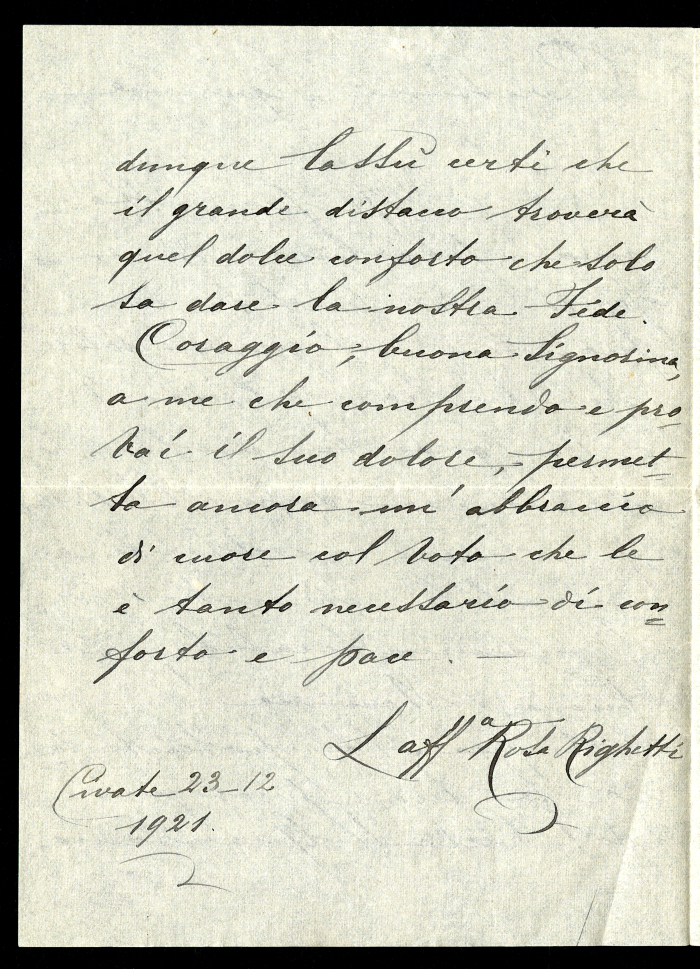 dunque lassù certi che
il grande distacco troverà
quel dolce conforto che solo
sa dare la nostra Fede.
Coraggio, buona Signorina,
a me che comprendo e pro-
vai il suo dolore, permet-
ta ancora un' abbraccio
di cuore col voto che le
è tanto necessario di con=
forto e pace. —
L'affª Rosa Righetti
Civate 23-12
1921.